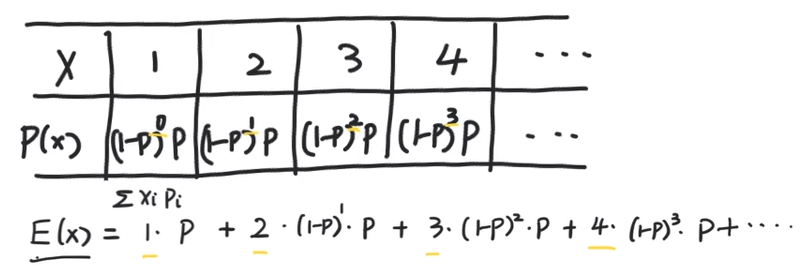 X 1 2 3 4 ...
P(x) (1-p)⁰p (1-p)¹p (1-p)²p (1-p)³p ...
Σ xi pi
E(x) = 1· p + 2·(1-p)¹·p + 3·(1-p)²·p + 4·(1-p)³·p+····